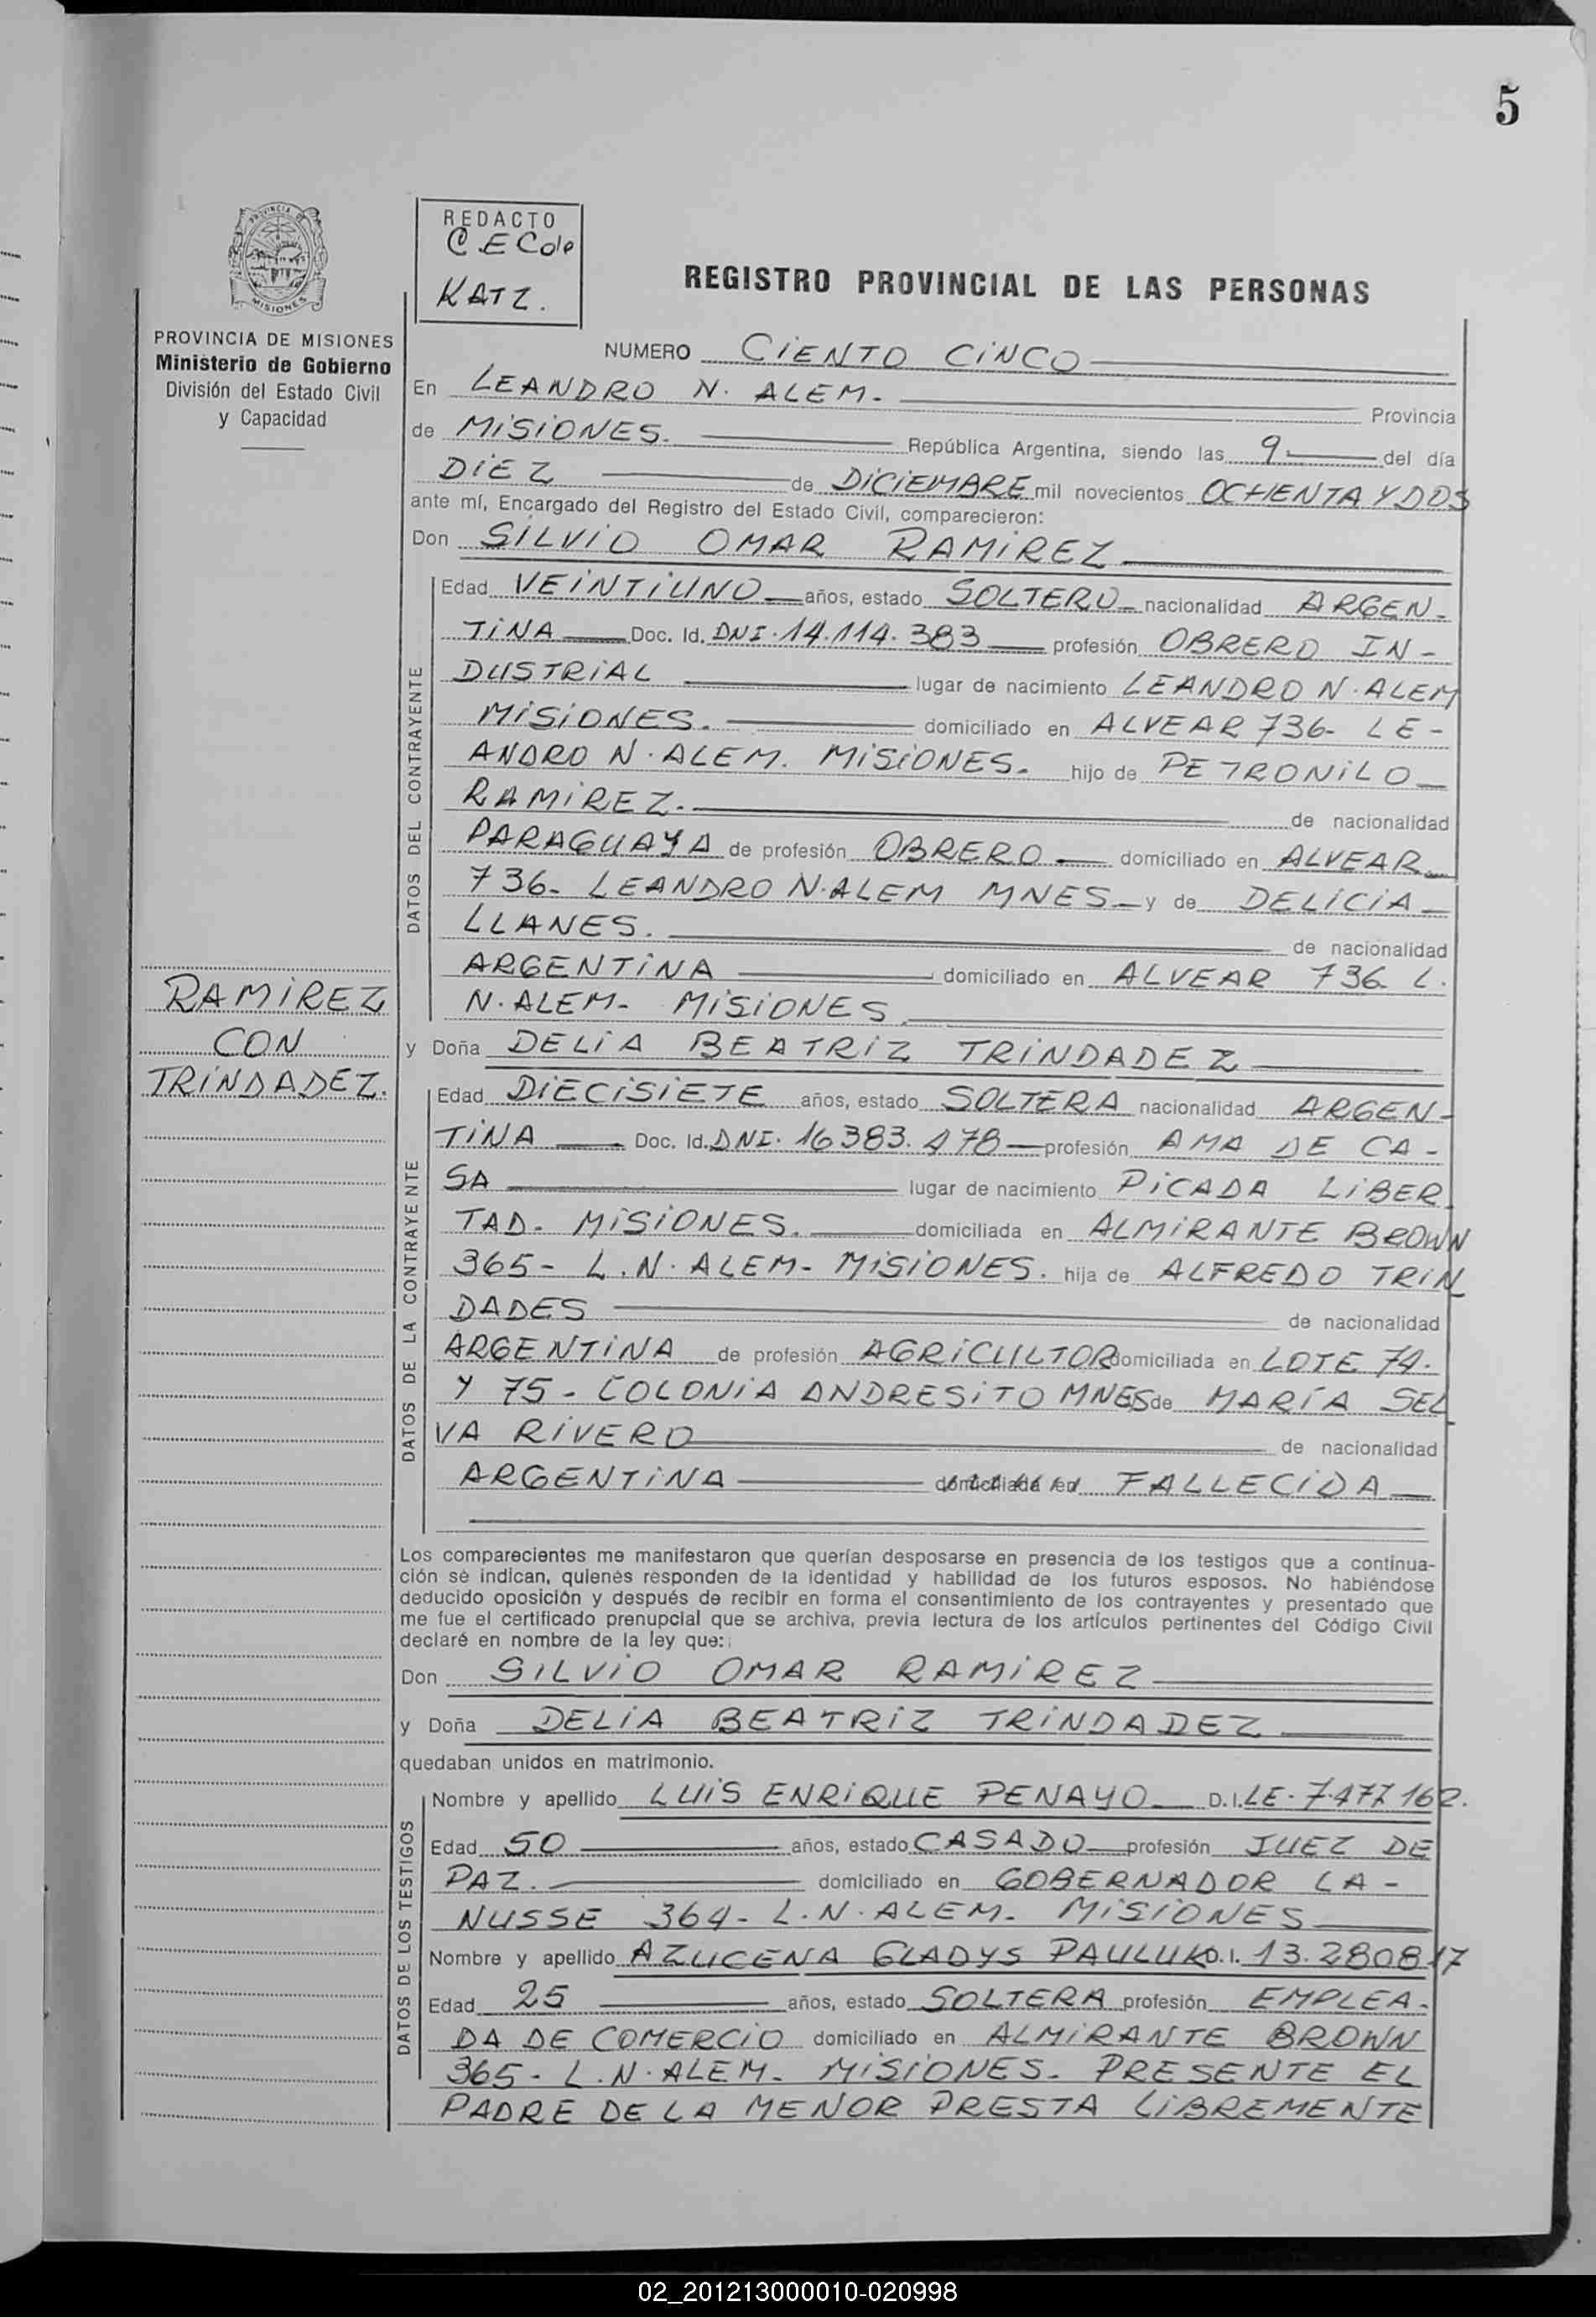 5
PROVINCIA DE
MISIONES
PROVINCIA DE MISIONES
Ministerio de Gobierno
División del Estado Civil
y Capacidad
REDACTO
KATZ.
REGISTRO PROVINCIAL DE LAS PERSONAS
NUMERO CIENTO CINCO
En LEANDRO N. ALEM. Provincia
de MISIONES. República Argentina, siendo las 9 del día
DIEZ de DICIEMBRE mil novecientos OCHENTA Y DOS
ante mí, Encargado del Registro del Estado Civil, comparecieron:
Don SILVIO OMAR RAMIREZ
DATOS DEL CONTRAYENTE
Edad VEINTIUNO años, estado SOLTERO nacionalidad ARGEN-
TINA Doc. Id. DNI. 14.114.383 profesión OBRERO IN-
DUSTRIAL lugar de nacimiento LEANDRO N. ALEM
MISIONES. domiciliado en ALVEAR 736- LE-
ANDRO N. ALEM. MISIONES. hijo de PETRONILO
RAMIREZ. de nacionalidad
PARAGUAYA de profesión OBRERO domiciliado en ALVEAR
736- LEANDRO N. ALEM MNES y de DELICIA
LLANES. de nacionalidad
ARGENTINA domiciliado en ALVEAR 736- L.
N. ALEM- MISIONES
RAMIREZ
CON
TRINDADEZ.
y Doña DELIA BEATRIZ TRINDADEZ
DATOS DE LA CONTRAYENTE
Edad DIECISIETE años, estado SOLTERA nacionalidad ARGEN-
TINA Doc. Id. DNI. 16383.478 profesión AMA DE CA-
SA lugar de nacimiento PICADA LIBER
TAD- MISIONES. domiciliada en ALMIRANTE BROWN
365- L.N. ALEM- MISIONES. hija de ALFREDO TRIN
DADES de nacionalidad
ARGENTINA de profesión AGRICULTOR domiciliada en LOTE 74.
Y 75- COLONIA ANDRESITO MNES y de MARÍA SEL
VA RIVERO de nacionalidad
ARGENTINA domiciliada en FALLECIDA
Los comparecientes me manifestaron que querían desposarse en presencia de los testigos que a continua-
ción se indican, quienes responden de la identidad y habilidad de los futuros esposos. No habiéndose
deducido oposición y después de recibir en forma el consentimiento de los contrayentes y presentado que
me fue el certificado prenupcial que se archiva, previa lectura de los artículos pertinentes del Código Civil
declaré en nombre de la ley que:
Don SILVIO OMAR RAMIREZ
y Doña DELIA BEATRIZ TRINDADEZ
quedaban unidos en matrimonio.
DATOS DE LOS TESTIGOS
Nombre y apellido LUIS ENRIQUE PENAYO D.I. LE.
Edad 50 años, estado CASADO profesión JUEZ DE
PAZ. domiciliado en GOBERNADOR LA-
NUSSE 364- L.N. ALEM. MISIONES
Nombre y apellido AZUCENA GLADYS PAULUK D.I. 13.280817
Edad 25 años, estado SOLTERA profesión EMPLEA-
DA DE COMERCIO domiciliado en ALMIRANTE BROWN
365- L.N. ALEM- MISIONES- PRESENTE EL
PADRE DE LA MENOR PRESTA LIBREMENTE
02_201213000010-020998